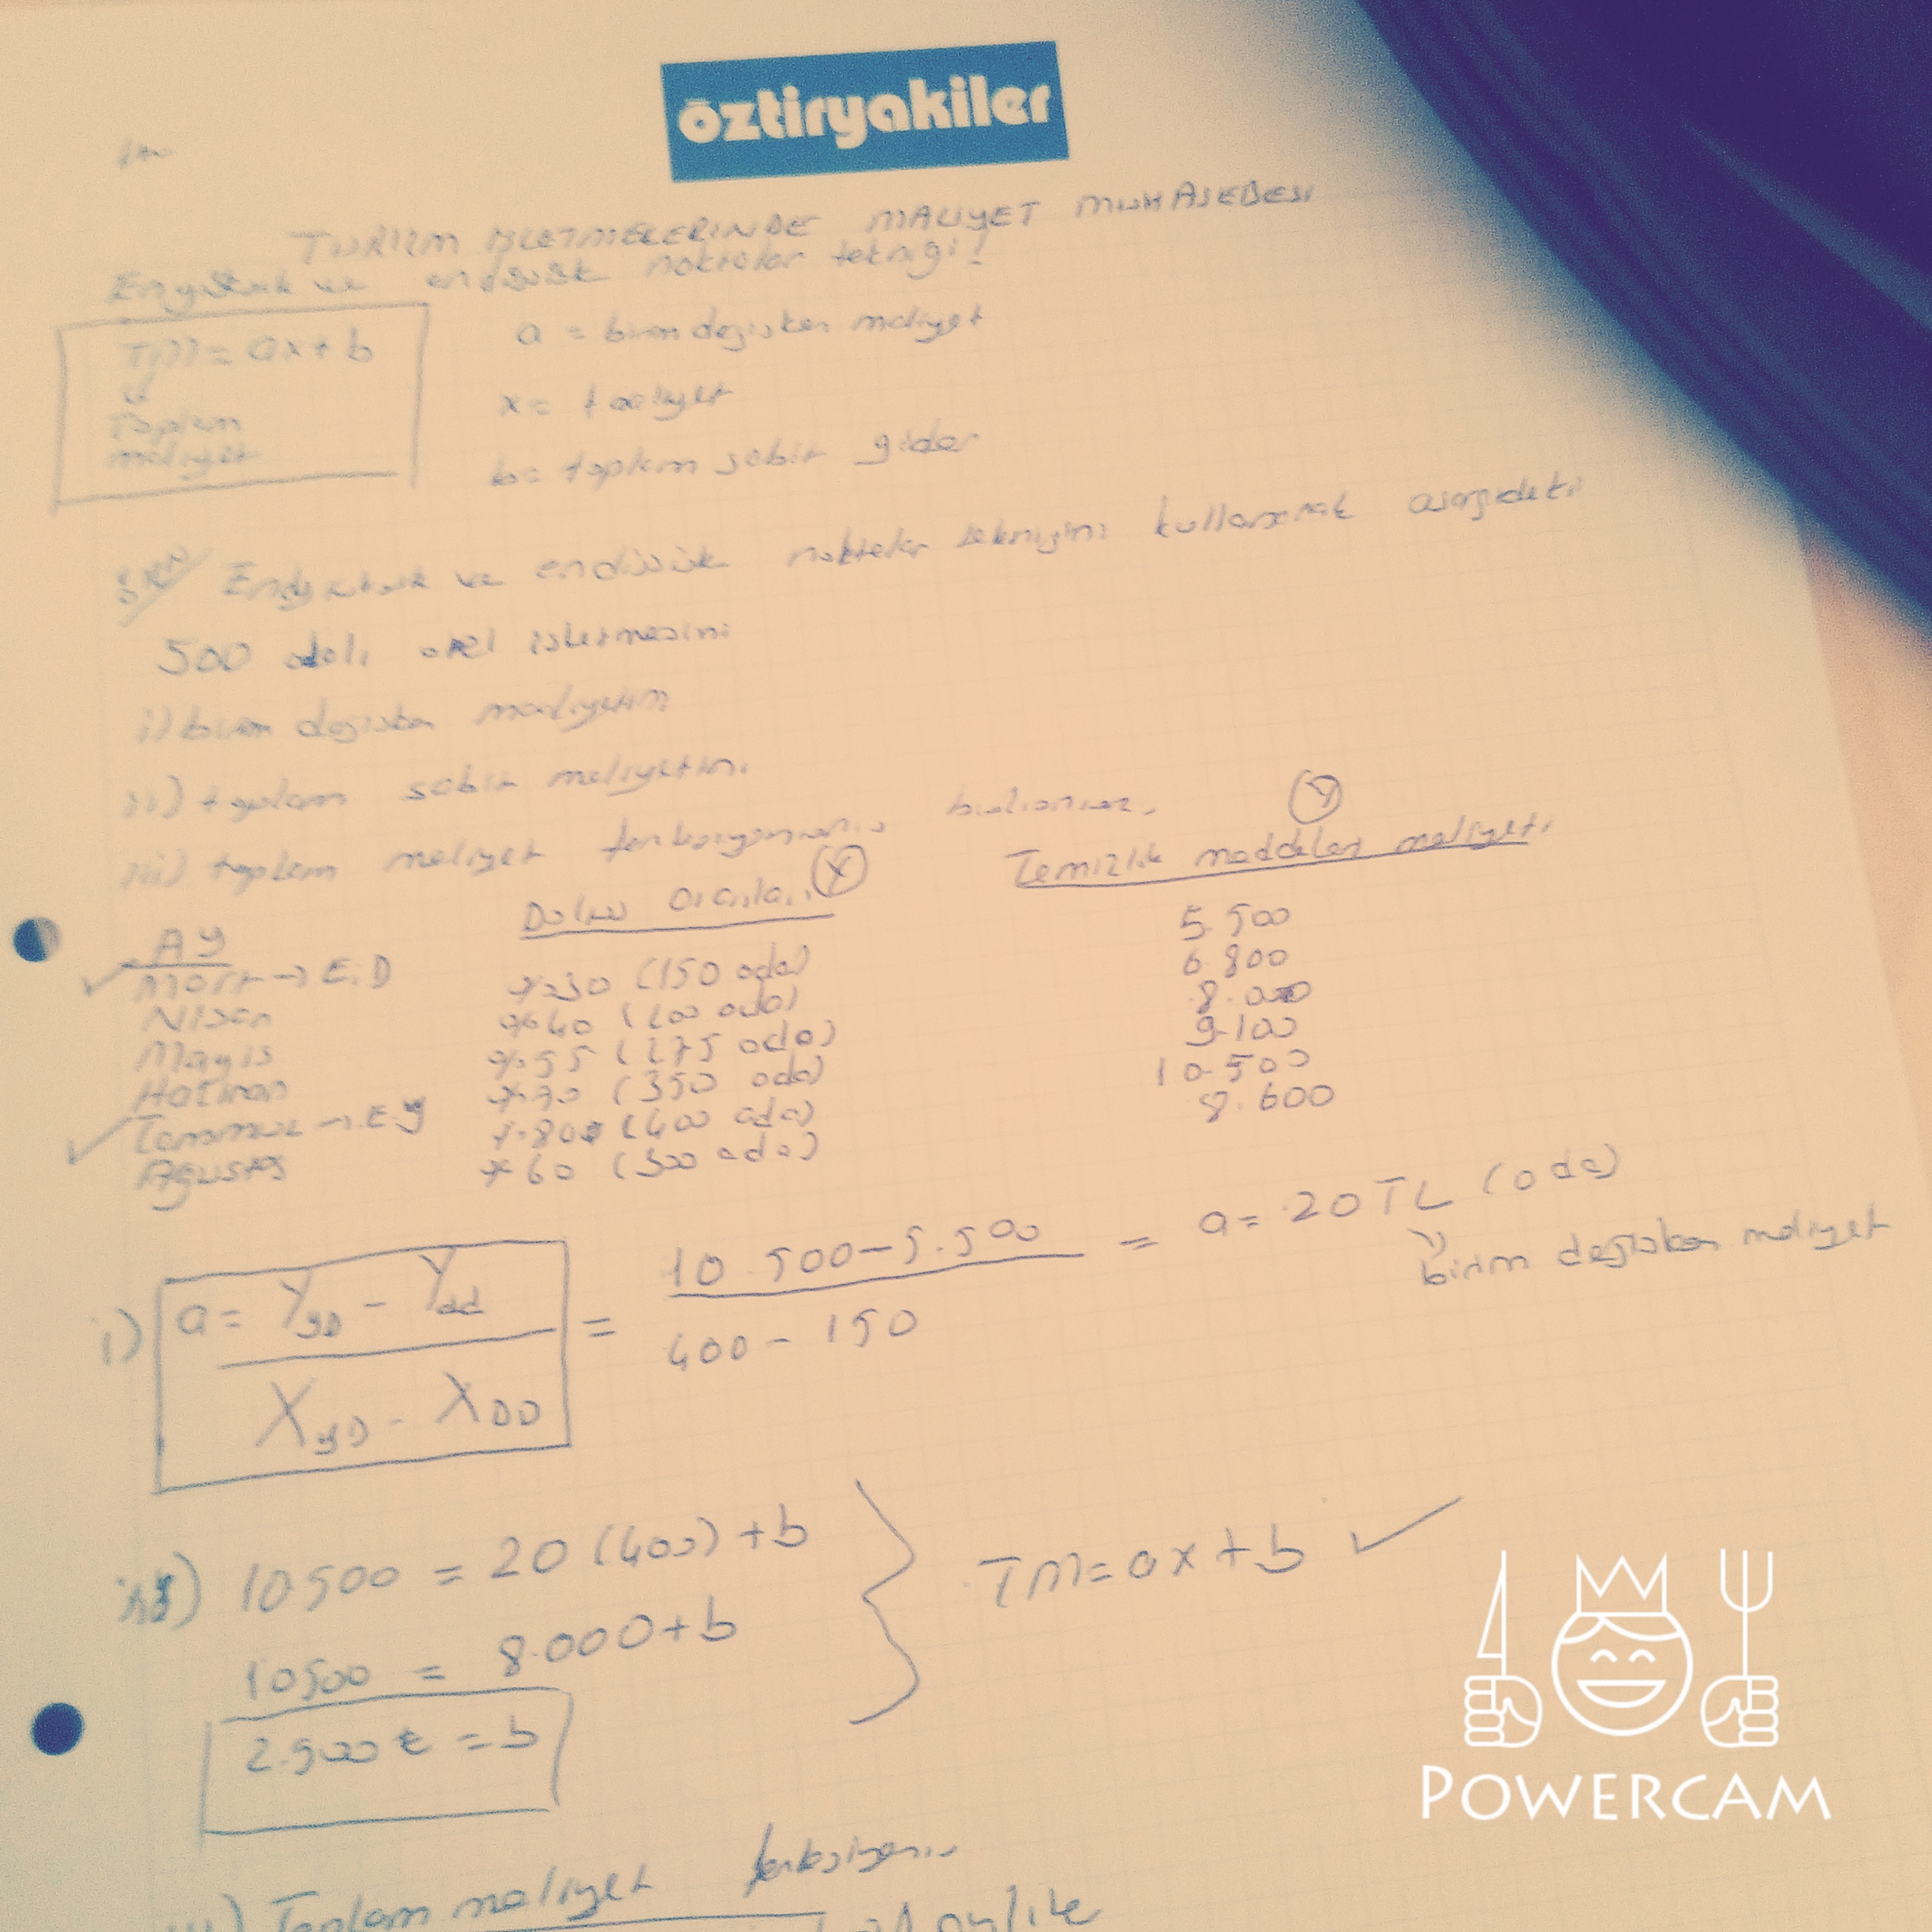 öztiryakiler
TURİZM İŞLETMELERİNDE MALİYET MUHASEBESİ
En yüksek ve en düşük noktalar tekniği!
TM = ax + b
Toplam
maliyet
a = birim değişken maliyet
x = faaliyet
b = toplam sabit gider
En yüksek ve en düşük noktalar tekniğini kullanarak aşağıdaki
500 odalı otel işletmesini
i) birim değişken maliyetini
ii) toplam sabit maliyetini
iii) toplam maliyet fonksiyonunu bulunuz.
Ay Doluluk Oranları X Temizlik maddeleri maliyeti Y
Mart → E.D %30 (150 oda) 5.500
Nisan %40 (200 oda) 6.800
Mayıs %55 (275 oda) 8.000
Haziran %70 (350 oda) 9.100
Temmuz → E.Y %80 (400 oda) 10.500
Ağustos %60 (300 oda) 8.600
i) a = YYD - Ydd / XYD - XDD = 10.500 - 5.500 / 400 - 150 = a = 20 TL (oda)
birim değişken maliyet
ii) 10500 = 20 (400) + b
10500 = 8.000 + b
2.500 ₺ = b
TM = ax + b
Toplam maliyet fonksiyonu
POWERCAM